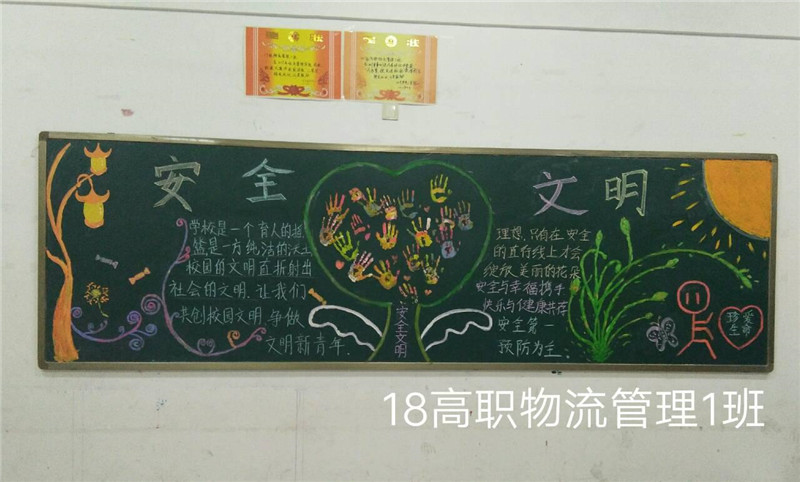 安全
文明
学校是一个育人的摇
篮是一方纯洁的沃土
校园的文明直折射出
社会的文明.让我们
共创校园文明.争做
文明新青年.
安全文明
理想,只有在安全
的直行线上才会
绽放美丽的花朵
安全与幸福携手
快乐与健康共存
安全第一
预防为主.
珍爱
生命
18高职物流管理1班